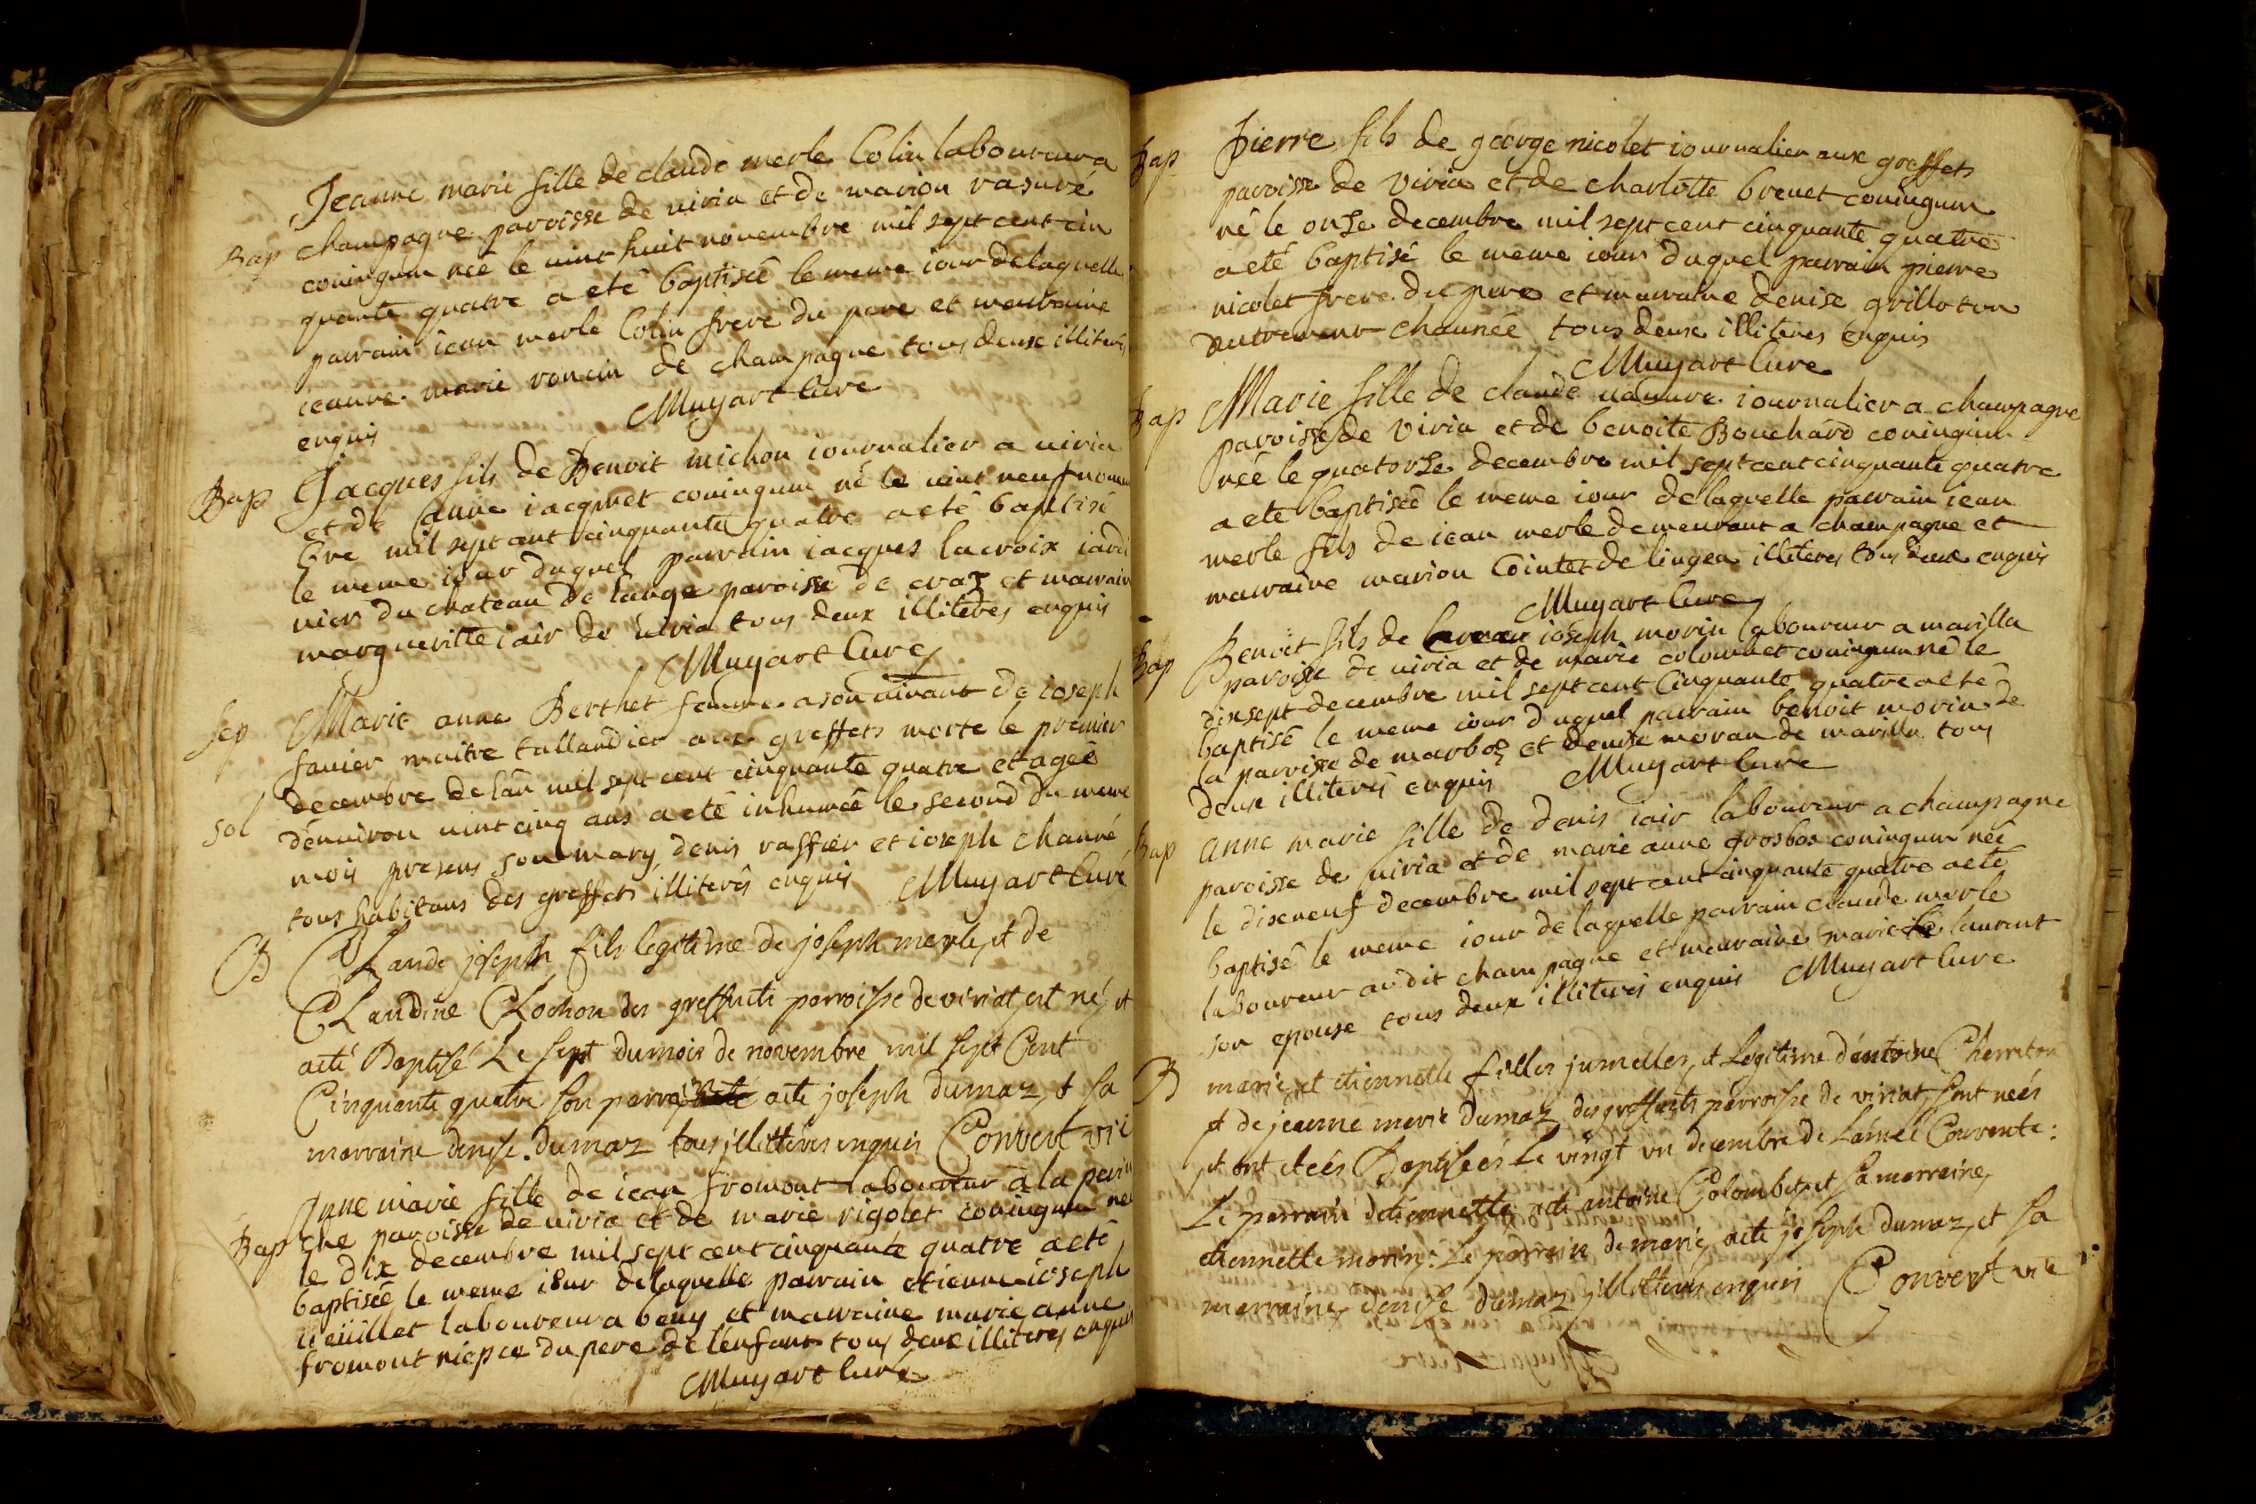 Jeanne marie fille de claude merle Colin laboureur a
Bap champagne paroisse de viria et de marion rasuré
coniugum née le uint huit novembre mil sept cent cin
quante quatre a eté baptisée le meme iour de laquelle
parrain iean merle Colin frere du pere et marraine
ieanne marie roncin de champagne tous deux illiteres
enquis Muyart Curé
Bap Jacques fils de Benoit michon iournalier a viria
et de anne iacquet coniugum né le uint neuf novem
bre mil sept cent cinquante quatre a eté baptisé
le meme iour duquel parrain iacques lacroix iardi
nier du chateau de lange paroisse de craz et marraine
margueritte iair de viria tous deux illiteres enquis
Muyart Curé
Sep Marie anne Berthet femme a son uivant de ioseph
fauier maitre tallandier aux greffets morte le premier
decembre de lan mil sept cent cinquante quatre et agée
sol d'enuiron uint cinq ans a eté inhumée le second du meme
mois presens son mary, denis raffier et ioseph chauné
tous habitans des greffets illiterés enquis Muyart Curé
B Claude joseph fils legitime de joseph merle, et de
Claudine Clochon des greffects parroisse de viriat est né, et
a eté Baptisé Le sept du mois de novembre mil sept Cent
Cinquante quatre son parrain a eté joseph dumaz, et sa
marraine denise dumaz tous jllitteres enquis Convert vic
Anne marie fille de iean fromont laboureur à la peru
Bap che paroisse de viria et de marie rigolet coniugum née
le dix decembre mil sept cent cinquante quatre a eté
baptisée le meme iour de laquelle parrain etienne ioseph
ueüillet laboureur a beny et marraine marie anne
fromont niepce du pere de l'enfant tous deux illiteres enquis
Muyart Curé
Bap Pierre fils de george nicolet iournalier aux greffets
paroisse de Viria et de charlotte brevet coniugum
né le onse decembre mil sept cent cinquante quatre
a eté baptisé le meme iour duquel parrain pierre
nicolet frere du pere et marraine denise grilloton
autrement chaunée tous deux illiteres enquis
Muyart Curé
Bap Marie fille de claude iournalier a champagne
paroisse de Viria et de benoite Bouchard coniugum
née le quatorse decembre mil sept cent cinquante quatre
a eté baptisée le meme iour de laquelle parrain iean
merle fils de iean merle demeurant a champagne et
marraine marion Cointet de lingea illiteres tous deux enquis
Muyart Curé
Bap Benoit fils de ioseph morin laboureur a marilla
paroisse de viria et de marie colomet coniugum né le
dix sept decembre mil sept cent Cinquante quatre a eté
baptisé le meme iour duquel parrain benoit morin de
la paroisse de marboz et denise moran de marilla tous
deux illiterés enquis Muyart Curé
Bap anne marie fille de denis iair laboureur a champagne
paroisse de viria et de marie anne grosbos coniugum née
le dixneuf decembre mil sept cent cinquante quatre a eté
baptisé le meme iour de laquelle parrain claude merle
laboureur au dit champagne et marraine marie laurent
son epouse tous deux illiterés enquis Muyart Curé
B marie, et etiennette filles jumelles, et Legitime d'antoine Cherriton
et de jeanne marie dumaz des greffects parroisse de viriat, sont neés
et ont eteés Baptiseés Le vingt un decembre de Lanneé Courente:
Le parrain detiennette a eté antoine Colombet, et sa marraine,
etiennette morin: Le parrain de marie, a eté joseph dumaz, et sa
marraine, denise dumaz jllitteres enquis Convert vic